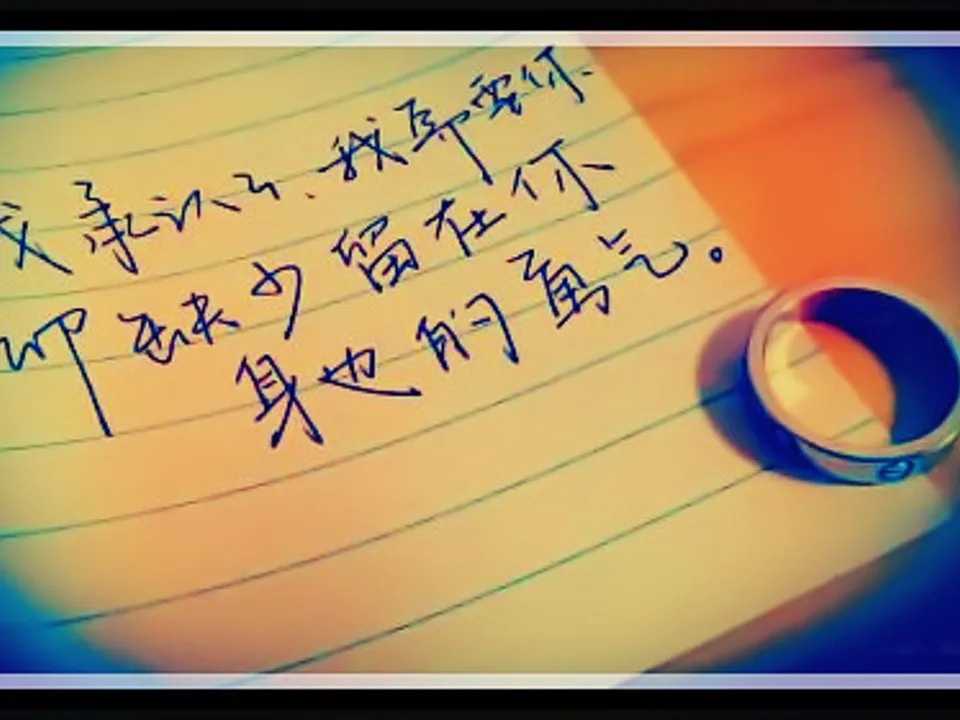 我承认了、我即爱你
却缺少留在你
身边的勇气。